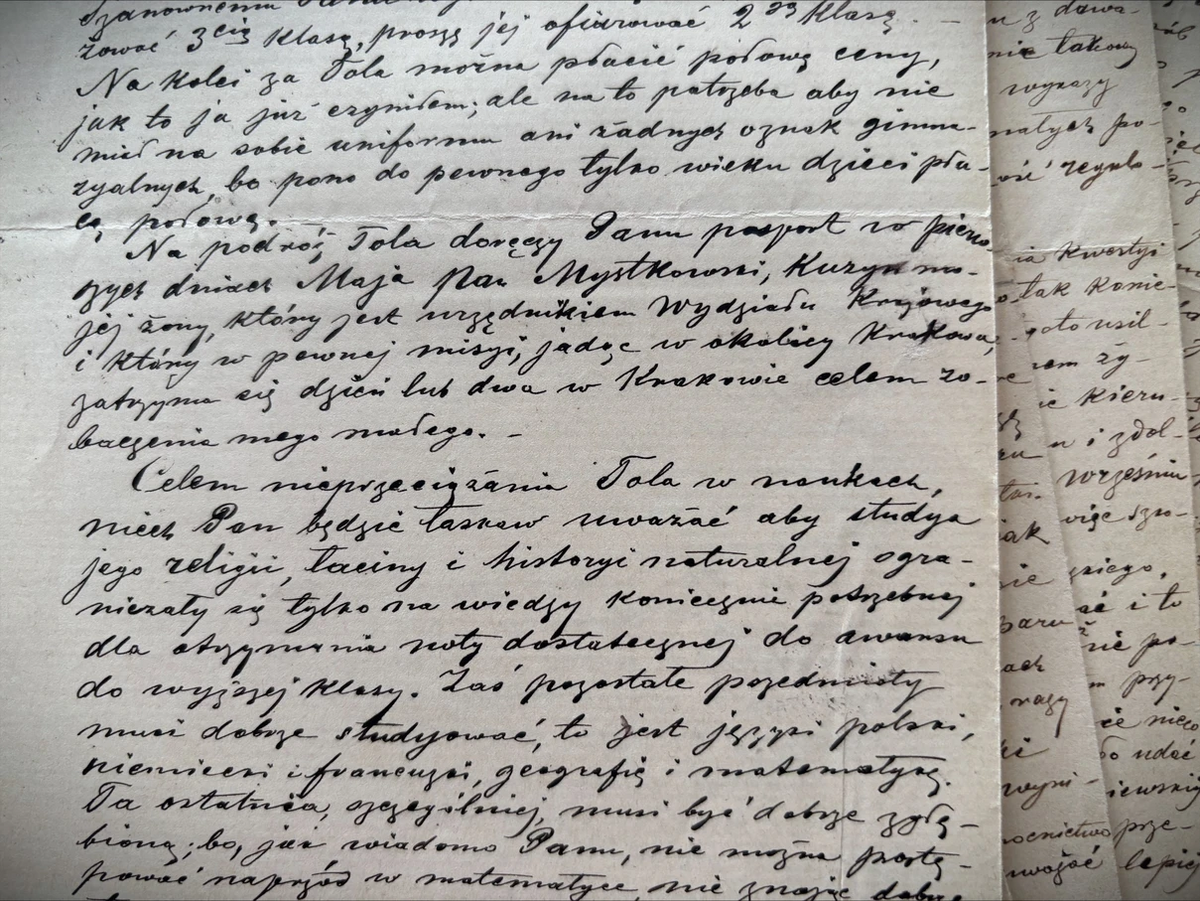 Szanownemu Panu
żować 3cią klasą, proszę jej ofiarować 2gą klasą. —
Na kolei za Tola można płacić połowę ceny,
jak to ja już czyniłem; ale na to potrzeba aby nie
miał na sobie uniformu ani żadnych oznak gimna-
zyalnych, bo pono do pewnego tylko wieku dzieci pła-
cą połowę.
Na podróż Tola doręczy Panu pasport w pierw-
szych dniach Maja Pan Mystkowski, Kuzyn mo-
jej żony, który jest urzędnikiem Wydziału Krajowego
i który w pewnej misyi, jadąc w okolicy Krakowa,
zatrzyma się dzień lub dwa w Krakowie celem zo-
baczenia mego małego. —
Celem nieprzeciążania Tola w naukach,
niech Pan będzie łaskaw uważać aby studya
jego religii, łaciny i historyi naturalnej ogra-
niczały się tylko na wiedzy koniecznie potrzebnej
dla otrzymania noty dostatecznej do awansu
do wyższej klasy. Zaś pozostałe przedmioty
musi dobrze studyować, to jest języki polski,
niemiecki i francuzki, geografię i matematykę.
Ta ostatnia, szczególniej, musi być dobrze zgłę-
bioną; bo, jak wiadomo Panu, nie można postę-
pować naprzód w matematyce nie znając dobrze
u z dawa-
nie takową
wyrazy
małych po-
ość regula-
ia kwestyi
tak konie-
oto usil-
rem ży-
ie kieru-
u i zdol-
wrześniu
więc szo-
skiego,
ać i to
nie po-
m przy-
że niego
do udać
iewskiej
ocnictwo prze-
uwojać lepiej